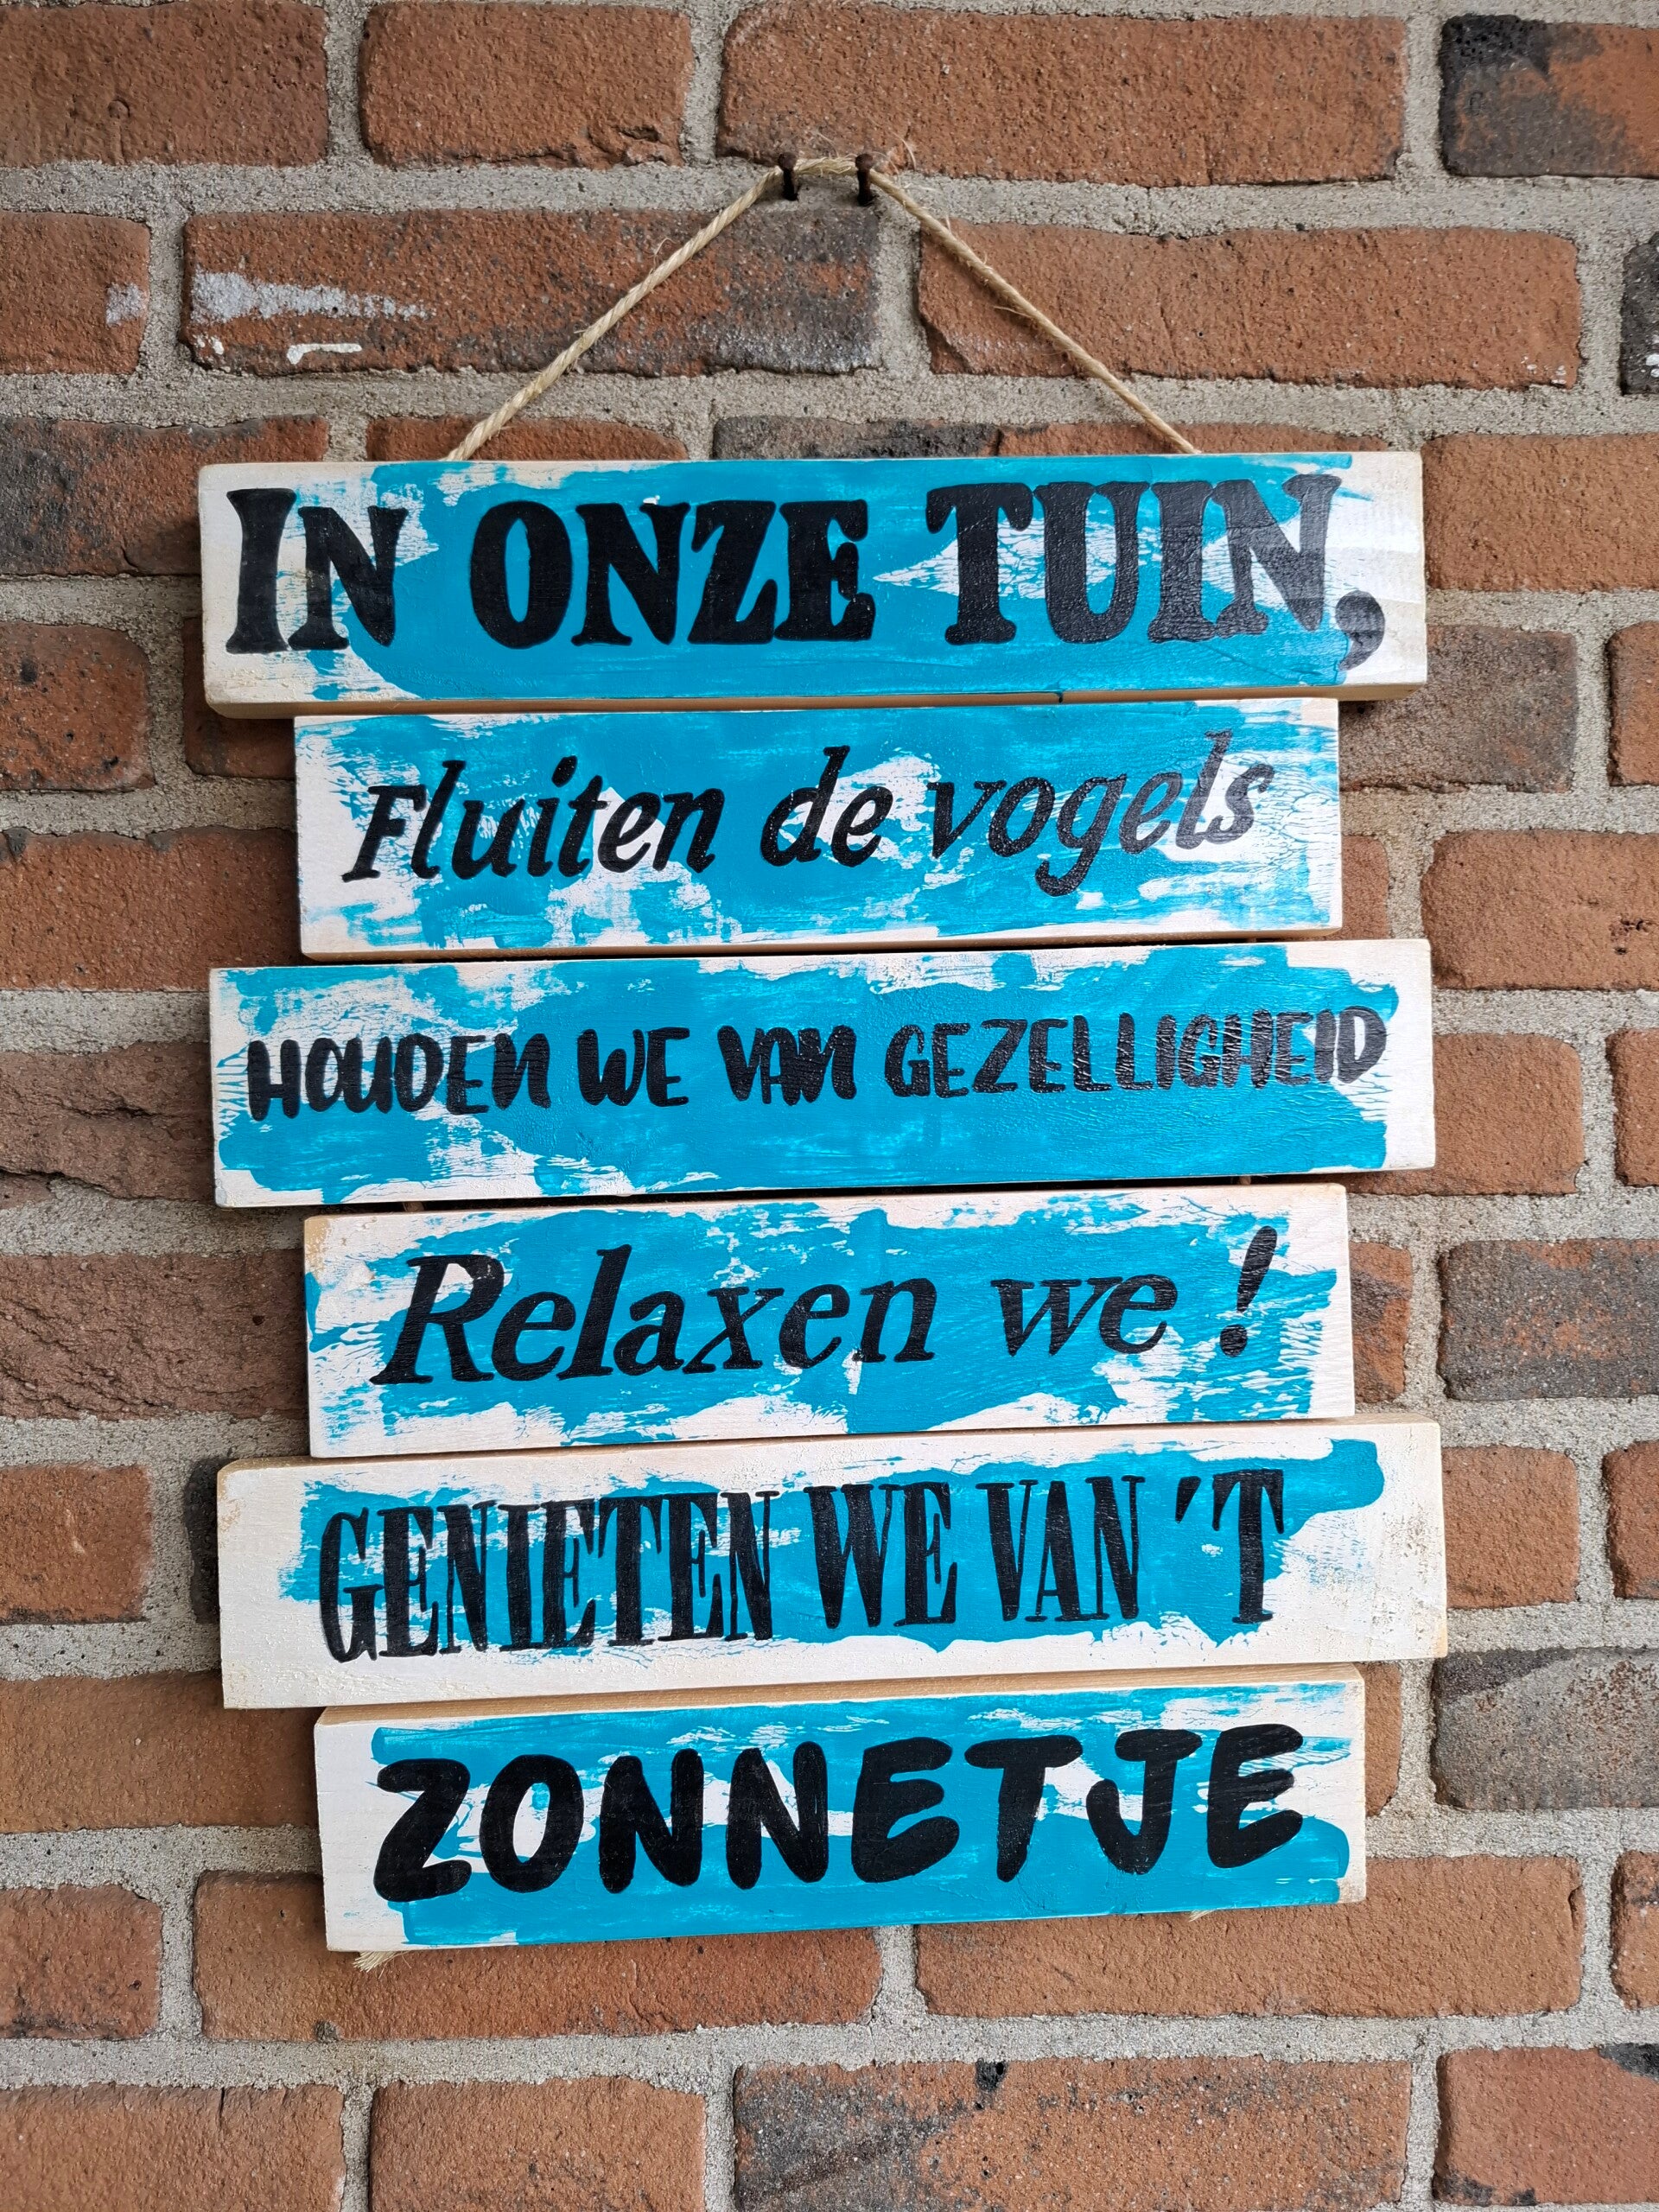 IN ONZE TUIN,
Fluiten de vogels
HOUDEN WE VAN GEZELLIGHEID
Relaxen we !
GENIETEN WE VAN 'T
ZONNETJE